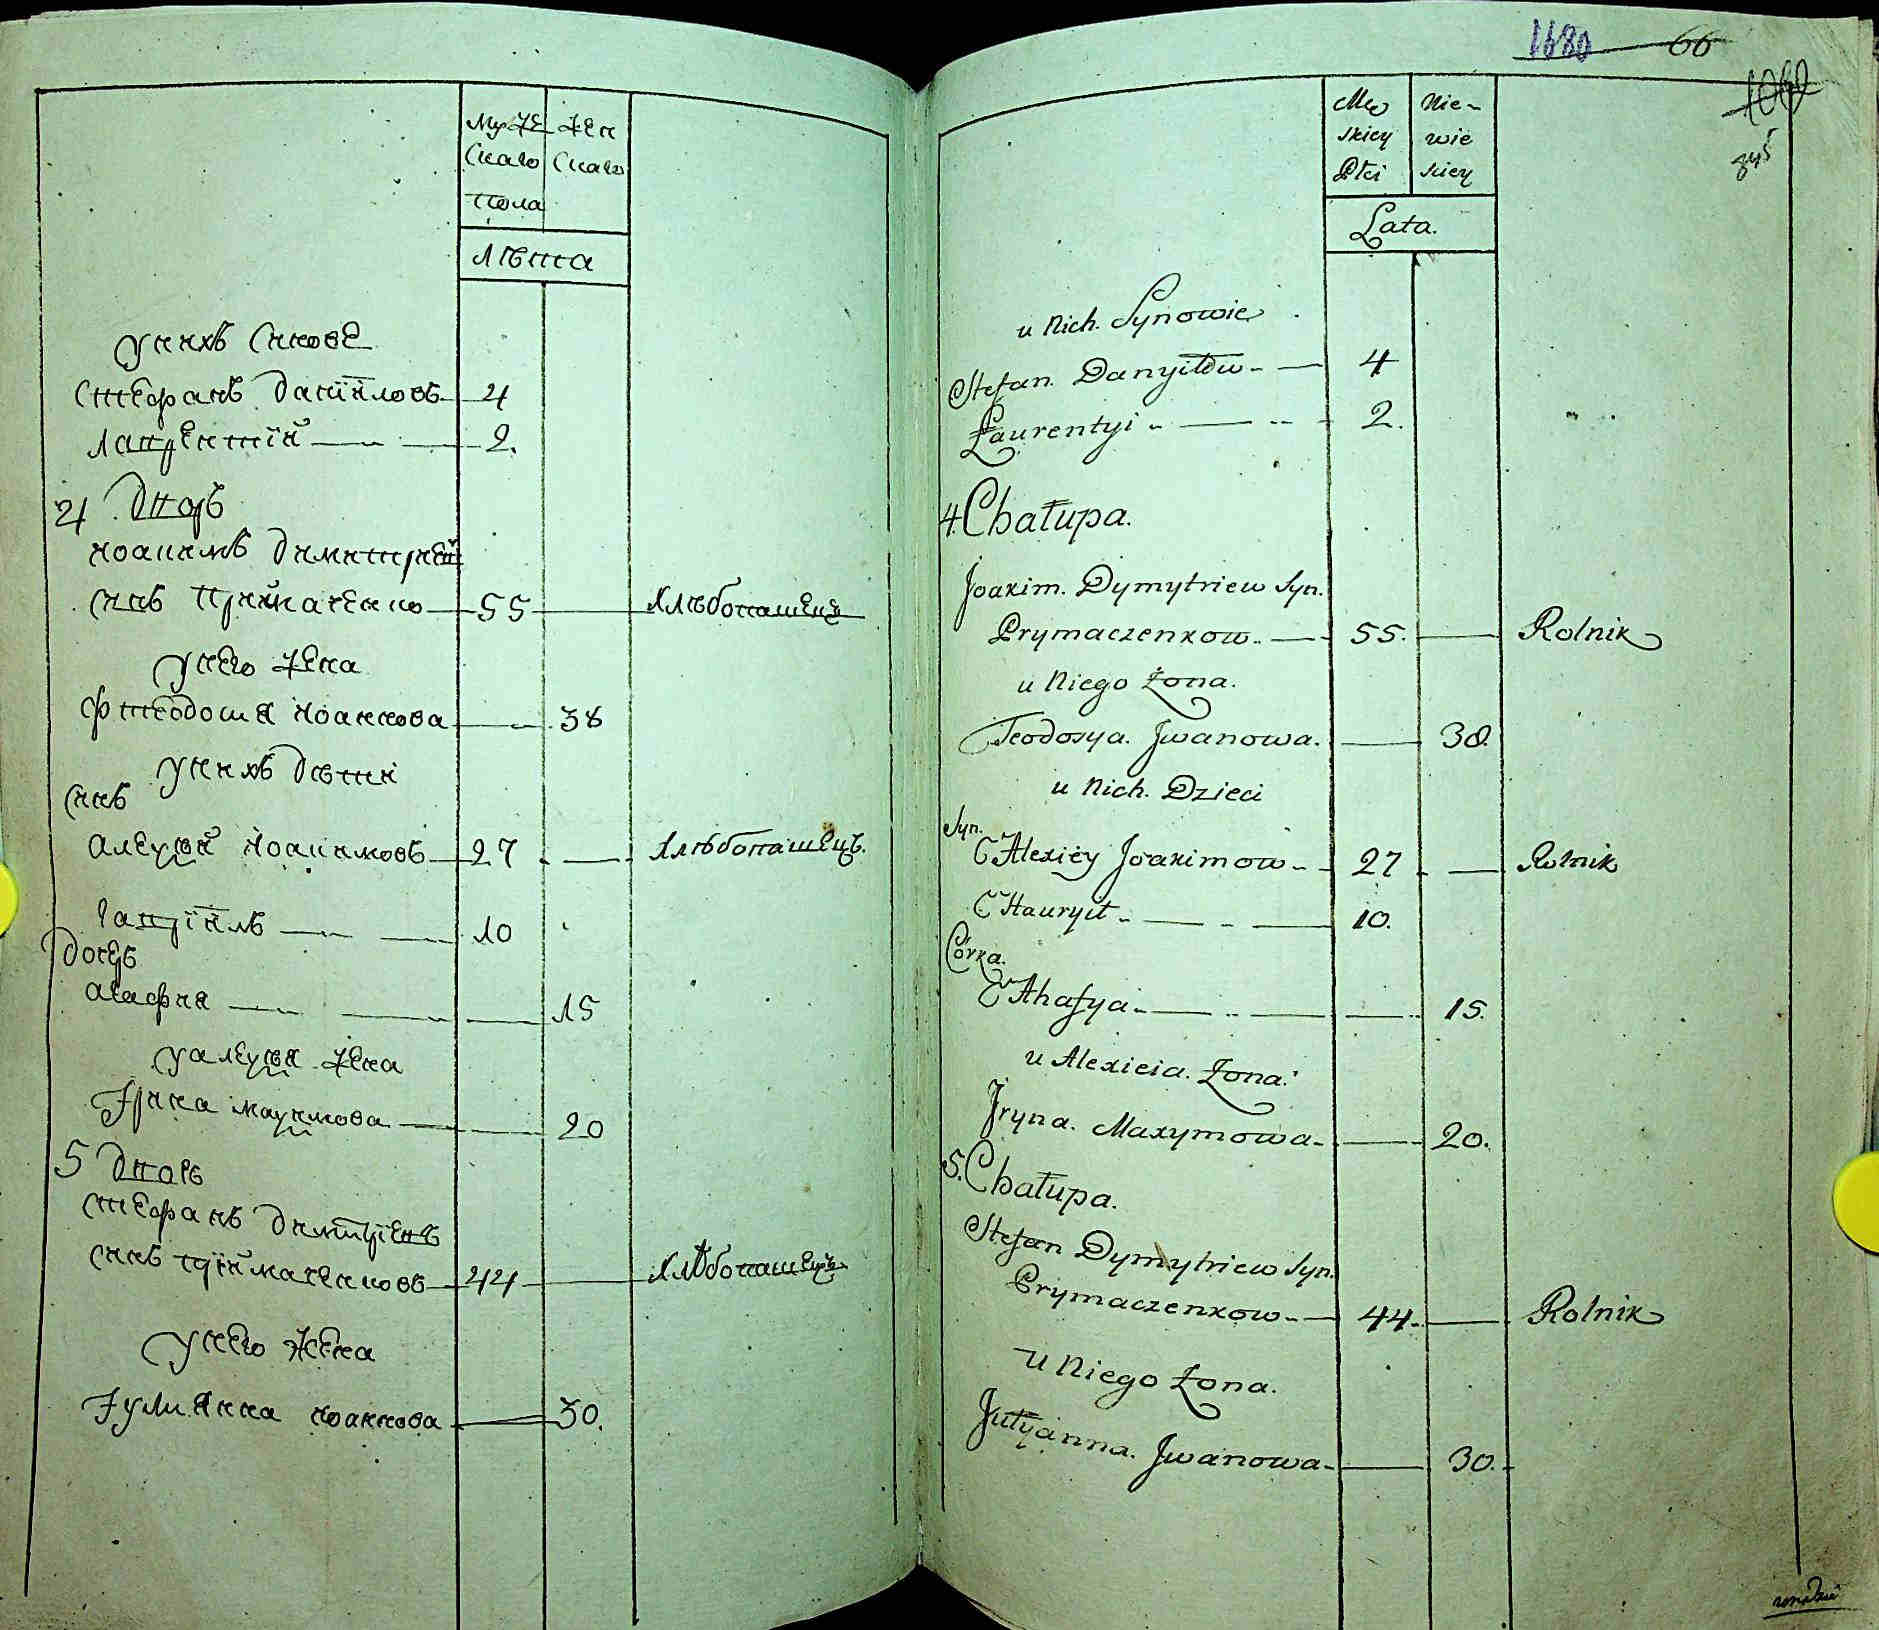 Муже
скаго
пола
Жен
скаго
Лѣта
у нихъ Синове
Стефанъ Даніиловъ 4
Лаврентій 2.
4 Дворъ
Иоакимъ Димитріев
синъ Примаченко 55 Хлѣбопашецъ
у него Жена
Фтеодосия Иоаннова 38
у нихъ дѣти
синъ
Алеѯѣй Иоакимовъ 27 Хлѣбопашецъ.
Гавріилъ 10
Дочеръ
Агафия 15
у Алеѯѣя Жена
Ирина Маѯимова 20
5 Дворъ
Стефанъ Димитріевъ
синъ Приймаченковъ 44 Хлѣбопашецъ
у него Жена
Иулиянна Иоаннова 30.
1680 66
1060
Męs
skiey
Płci
Nie-
wie
skiey
Lata.
u Nich. Synowie
Stefan. Danyiłow 4
Łaurentyi 2.
4. Chałupa.
Joaxim. Dymytriew Syn.
Prymaczenxow. 55. Rolnik
u Niego Żona.
Teodosya. Jwanowa. 38.
u Nich. Dzieci
Syn.
Alexiey Joaximow 27 Rolnik
Hauryił 10.
Córxa.
Ahafya 15.
u Alexieia. Żona.
Jryna. Maxymowa 20.
5. Chałupa.
Stefan Dymytriew Syn.
Prymaczenxow 44. Rolnik
u Niego Żona.
Jułyanna. Jwanowa 30.